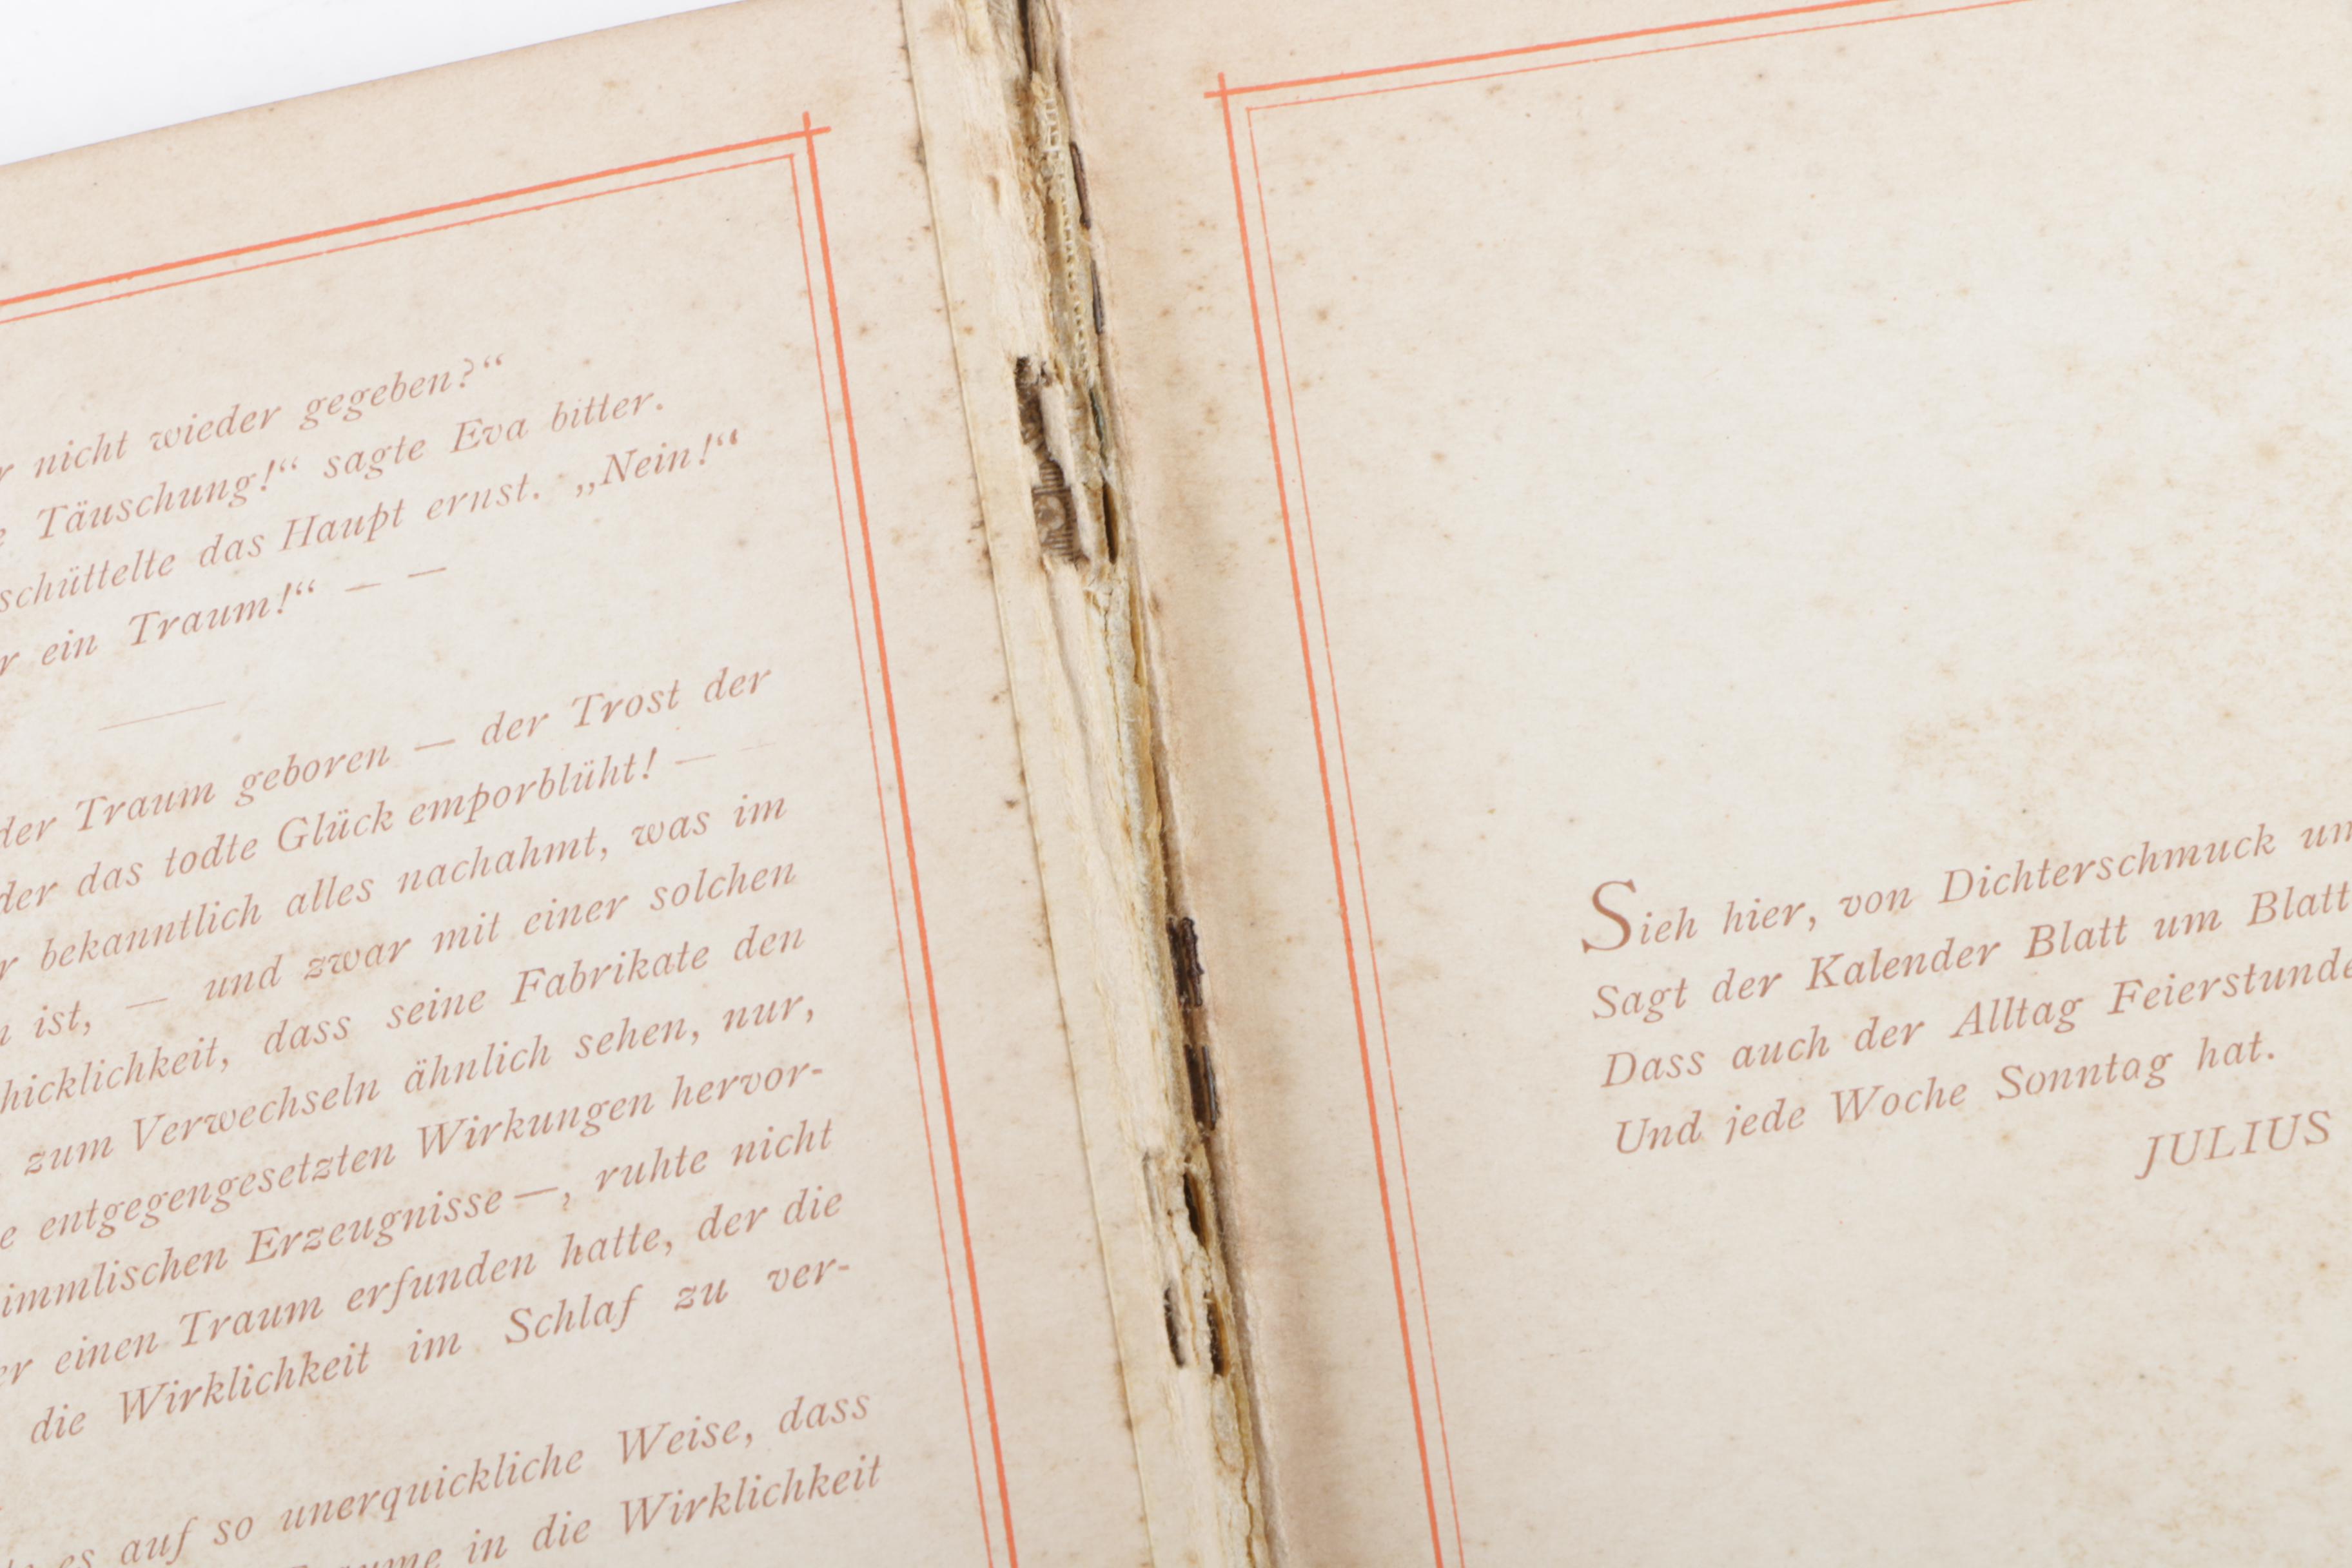 nicht wieder gegeben?“
Täuschung!“ sagte Eva bitter.
schüttelte das Haupt ernst. „Nein!“
ein Traum!“ — —
der Traum geboren — der Trost der
der das todte Glück emporblüht! — —
bekanntlich alles nachahmt, was im
ist, — und zwar mit einer solchen
hicklichkeit, dass seine Fabrikate den
zum Verwechseln ähnlich sehen, nur,
entgegengesetzten Wirkungen hervor-
immlischen Erzeugnisse —, ruhte nicht
einen Traum erfunden hatte, der die
die Wirklichkeit im Schlaf zu ver-
es auf so unerquickliche Weise, dass
in die Wirklichkeit
Sieh hier, von Dichterschmuck
Sagt der Kalender Blatt um Blatt
Dass auch der Alltag Feierstunde
Und jede Woche Sonntag hat.
JULIUS